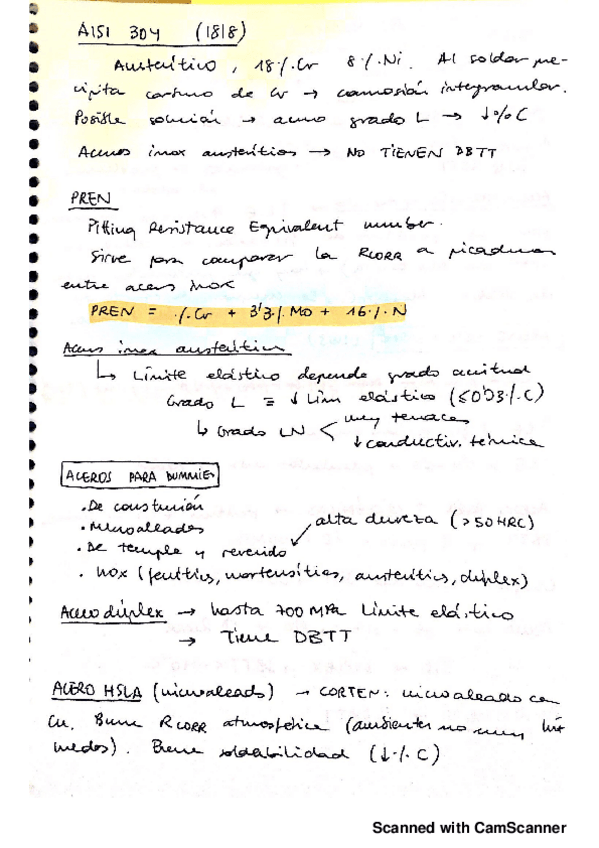 AISI 304 (18/8)
Austenítico, 18%.Cr 8%.Ni. Al soldar pre-
cipita carburo de Cr → corrosión intergranular.
Posible solución → acero grado L → ↓%C
Aceros inox austeníticos → NO TIENEN DBTT
PREN
Pitting Resistance Equivalent number.
Sirve para comparar la RCORR a picaduras
entre aceros inox
PREN = %.Cr + 3'3%.Mo + 16%.N
Aceros inox austeníticos
↳ Límite elástico depende grado acritud
Grado L ≡ ↓ Lim elástico (≤0'03%.C)
↳ Grado LN < muy tenaces
↓ conductiv. térmica
ACEROS PARA DUMMIES
• De construcción
• Microaleados
• De temple y revenido → alta dureza (>50HRC)
• Inox (ferríticos, martensíticos, austeníticos, duplex)
Acero dúplex → hasta 700 MPa Límite elástico
→ Tiene DBTT
ACERO HSLA (microaleado) → CORTEN: microaleado con
Cu. Buena RCORR atmosférica (ambientes no muy hú-
medos). Buena soldabilidad (↓%.C)
Scanned with CamScanner